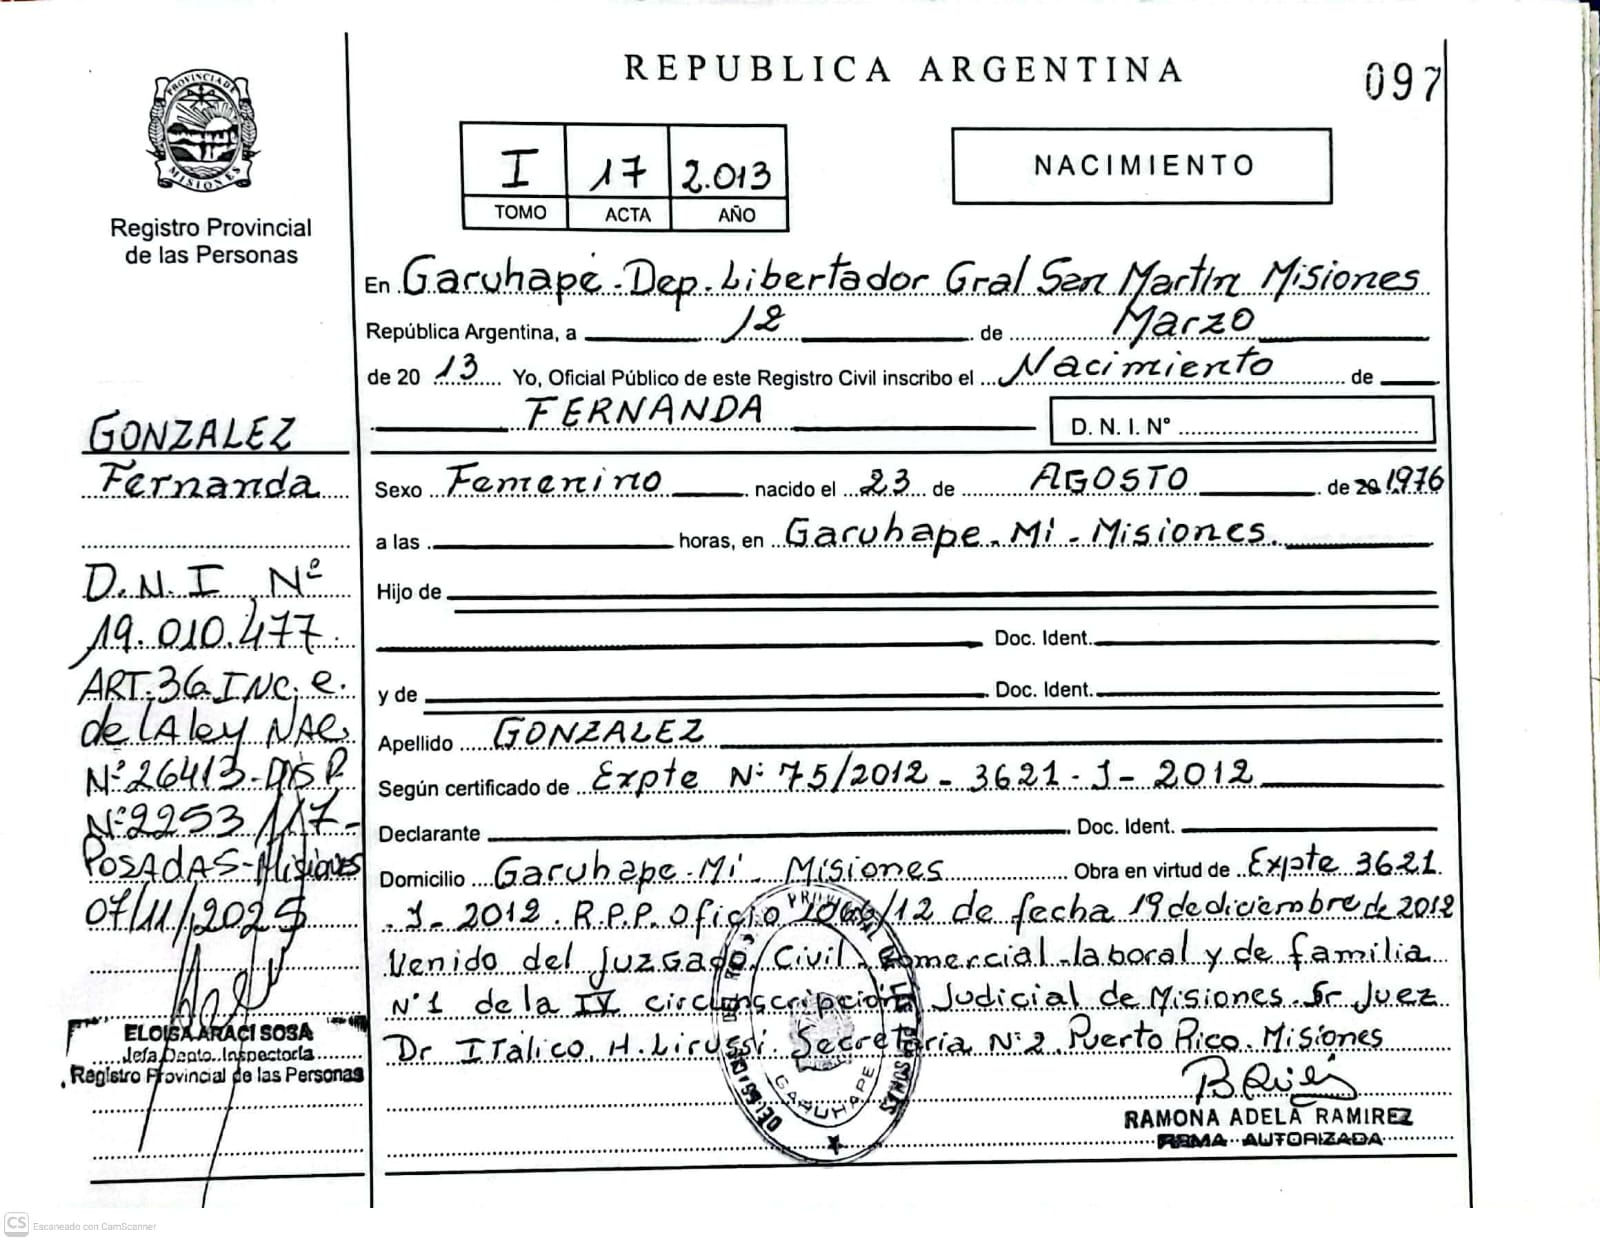 REPUBLICA ARGENTINA
097
PROVINCIA DE
MISIONES
Registro Provincial
de las Personas
I 17 2.013
TOMO ACTA AÑO
NACIMIENTO
En Garuhapé - Dep. Libertador Gral San Martín Misiones
República Argentina, a 12 de Marzo
de 20 13 Yo, Oficial Público de este Registro Civil inscribo el Nacimiento de
FERNANDA
D. N. I. N°
Sexo Femenino nacido el 23 de AGOSTO de 20 1976
a las horas, en Garuhape - Mí - Misiones.
Hijo de
Doc. Ident.
y de Doc. Ident.
Apellido GONZALEZ
Según certificado de Expte N° 75/2012 - 3621 - J - 2012
Declarante Doc. Ident.
Domicilio Garuhape - Mí - Misiones Obra en virtud de Expte 3621
- J - 2012. R.P.P. Oficio /12 de fecha 19 de diciembre de 2012
Venido del Juzgado Civil Comercial - laboral y de familia
N°1 de la IV circunscripción Judicial de Misiones. Sr Juez
Dr Itálico. H. Lirussi. Secretaria N°2 Puerto Rico. Misiones
RAMONA ADELA RAMIREZ
FIRMA AUTORIZADA
GARUHAPE
GONZALEZ
Fernanda
D.N.I. Nº
19.010.477
ART. 36 INC. e.
de lA ley NAC.
Nº 26413 - DISP.
Nº 2253/17 -
POSAdAS - Misiones
07/11/2025
ELOISA ARACI SOSA
Jefa Depto. Inspectoría
Registro Provincial de las Personas
CS Escaneado con CamScanner